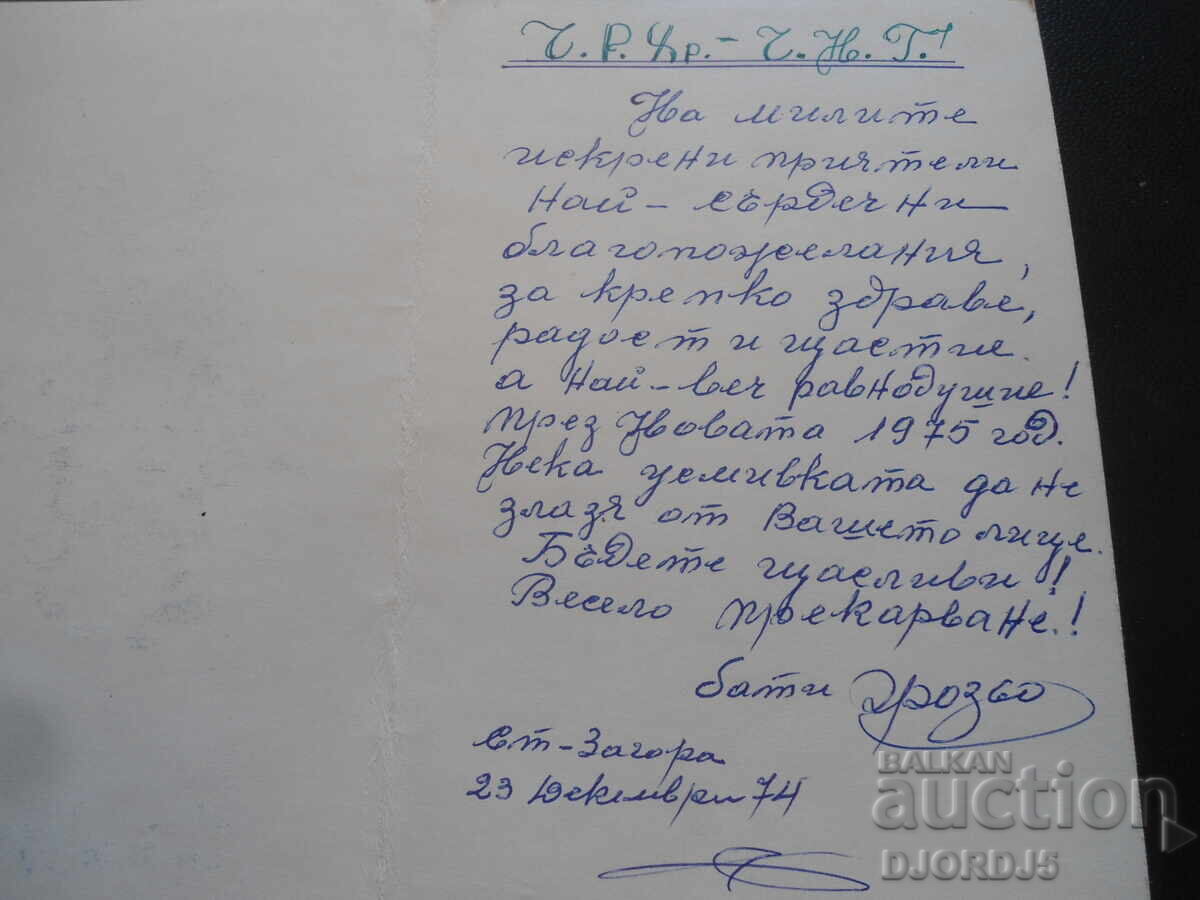 Ч.Р.Хр.- Ч.Н.Г.!
На милите
искрени приятели
Най - сърдечни
благопожелания,
за крепко здраве,
радост и щастие.
а най-веч равнодушие!
през Новата 1975 год.
Нека усмивката да не
злазя от Вашето лице.
Бъдете щасливи!
Весело прекарване!
бати Грозьо
Ст-Загора
23 Декември 74
BALKAN
auction
DJORDJ5